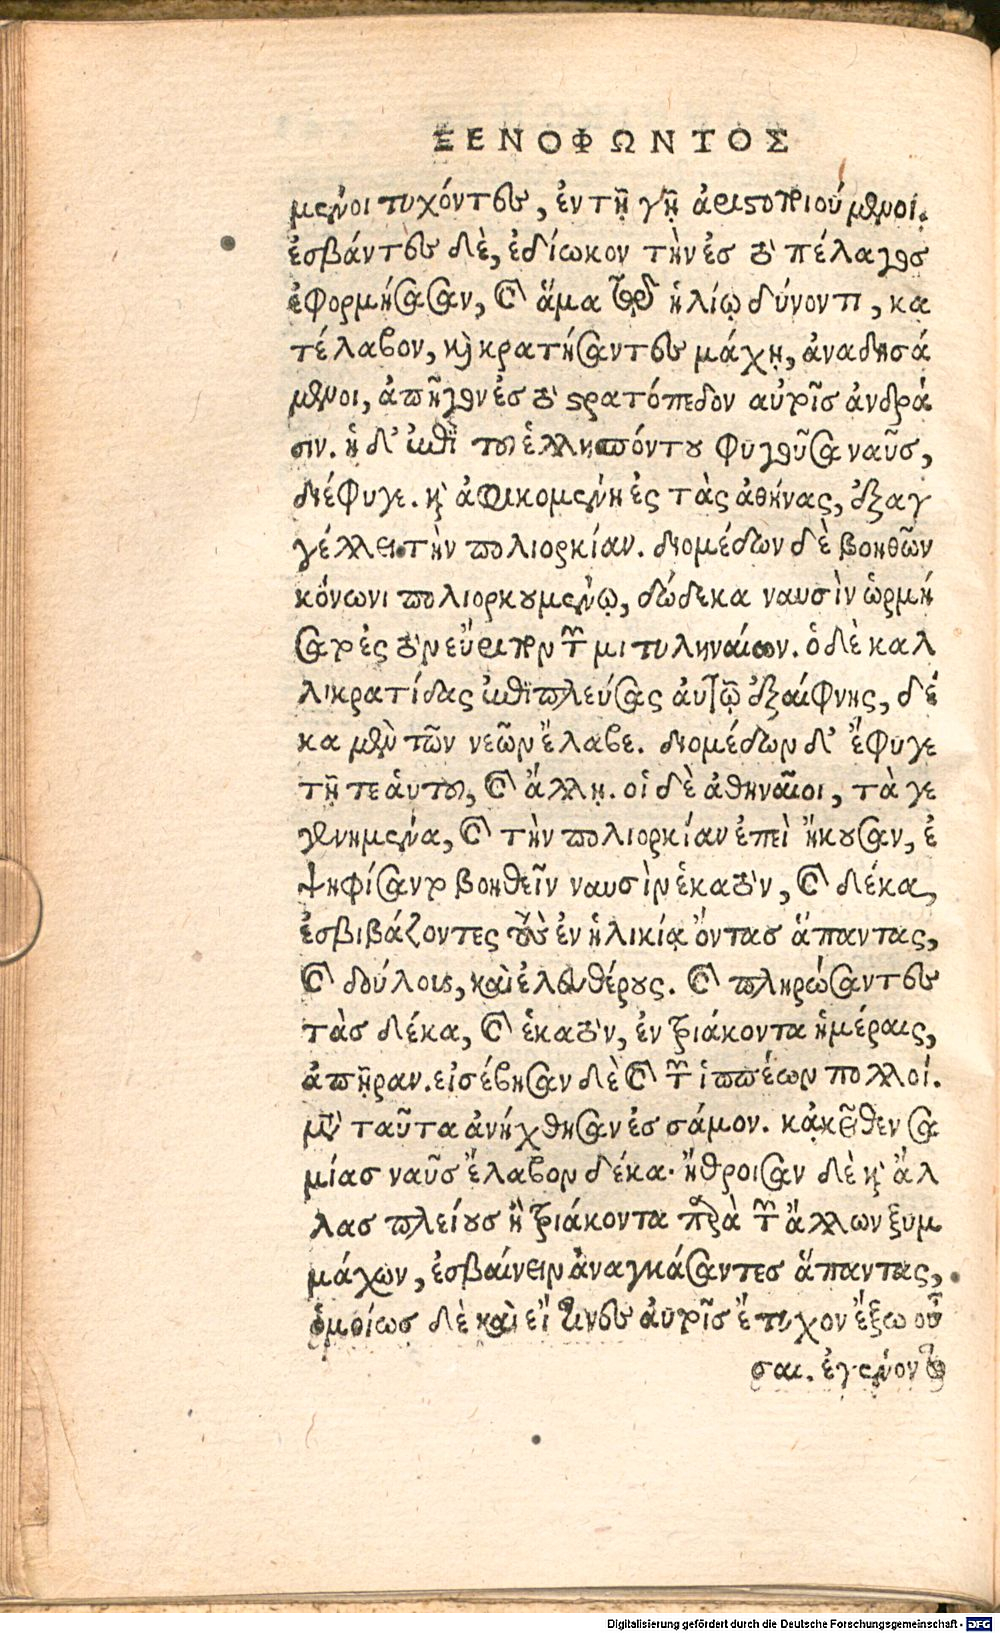 ΞΕΝΟΦΩΝΤΟΣ
μενοι τυχόντες, ἐν τῇ γῇ ἀριστοποιούμενοι.
ἐσβάντες δὲ, ἐδίωκον τὴν ἐσ τὸ πέλαγοσ
ἐφορμήσασαν, καὶ ἅμα τῷ ἡλίῳ δύνοντι, κα
τέλαβον, καὶ κρατήσαντες μάχῃ, ἀναδησά
μενοι, ἀπῆγον ἐσ τὸ στρατόπεδον αὐτοῖσ ἀνδρά
σιν. ἡ δ' ἐπὶ τοῦ ἑλλησπόντου φυγοῦσα ναῦσ,
διέφυγε. καὶ ἀφικομένη ἐς τὰς ἀθήνας, ἐξαγ
γέλλει τὴν πολιορκίαν. διομέδων δὲ βοηθῶν
κόνωνι πολιορκουμένῳ, δώδεκα ναυσὶν ὡρμή
σατο ἐς τὸν εὔριπον τῶν μιτυληναίων. ὁ δὲ καλ
λικρατίδας ἐπιπλεύσας αὐτῷ ἐξαίφνης, δέ
κα μὲν τῶν νεῶν ἔλαβε. διομέδων δ' ἔφυγε
τῇ τε ἁυτοῦ, καὶ ἄλλῃ. οἱ δὲ ἀθηναῖοι, τὰ γε
γενημένα, καὶ τὴν πολιορκίαν ἐπεὶ ἤκουσαν, ἐ
ψηφίσαντο βοηθεῖν ναυσὶν ἑκατὸν, καὶ δέκα,
ἐσβιβάζοντες τοὺς ἐν ἡλικίᾳ ὄντασ ἅπαντας,
καὶ δούλους, καὶ ἐλευθέρους. καὶ πληρώσαντες
τὰσ δέκα, καὶ ἑκατὸν, ἐν τριάκοντα ἡμέραις,
ἀπῇραν. εἰσέβησαν δὲ καὶ τῶν ἱππέων πολλοί.
μετὰ ταῦτα ἀνήχθησαν ἐσ σάμον. κἀκεῖθεν σα
μίασ ναῦσ ἔλαβον δέκα. ἤθροισαν δὲ καὶ ἄλ
λασ πλείουσ ἢ τριάκοντα παρὰ τῶν ἄλλων ξυμ
μάχων, ἐσβαίνειν ἀναγκάσαντεσ ἅπαντας,
ὁμοίωσ δὲ καὶ εἴ τινες αὐτοῖσ ἔτυχον ἔξω οὖ
σαι. ἐγένοντο
Digitalisierung gefördert durch die Deutsche Forschungsgemeinschaft - DFG